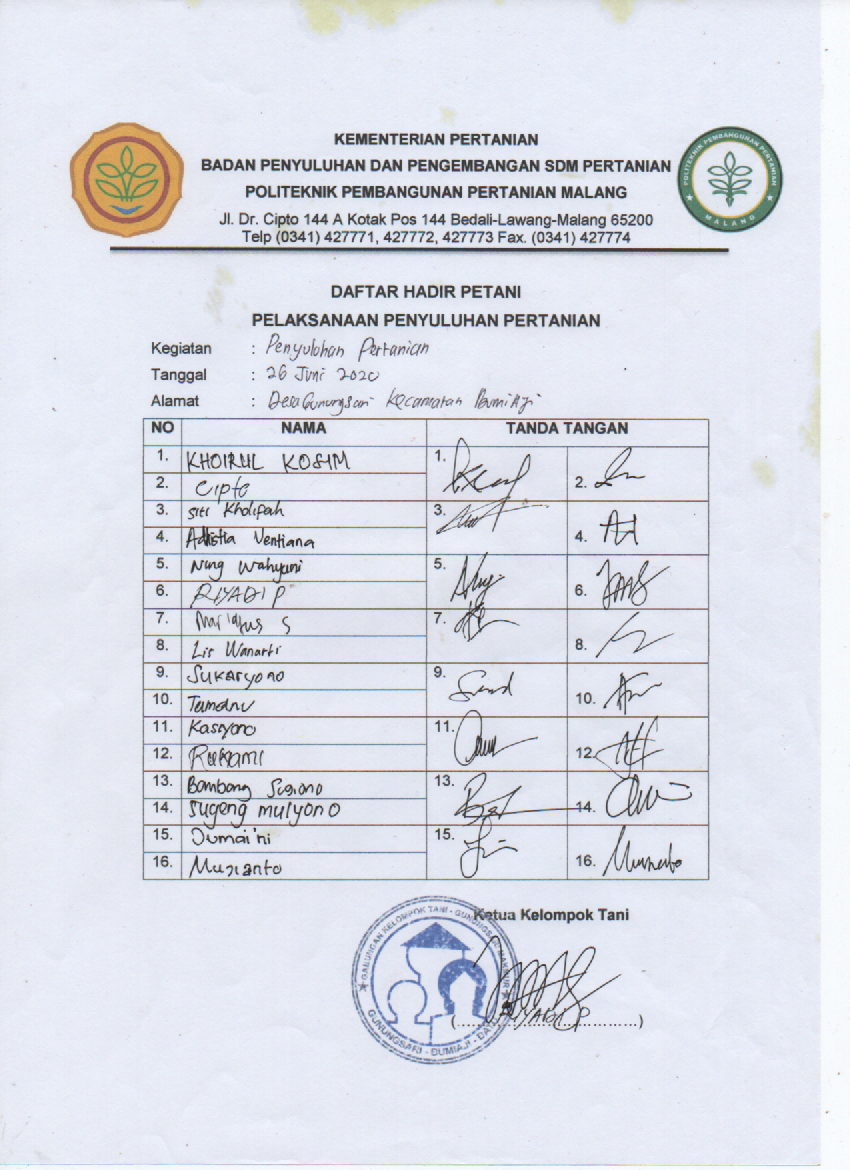 KEMENTERIAN PERTANIAN
BADAN PENYULUHAN DAN PENGEMBANGAN SDM PERTANIAN
POLITEKNIK PEMBANGUNAN PERTANIAN MALANG
Jl. Dr. Cipto 144 A Kotak Pos 144 Bedali-Lawang-Malang 65200
Telp (0341) 427771, 427772, 427773 Fax. (0341) 427774
POLITEKNIK PEMBANGUNAN PERTANIAN
MALANG
DAFTAR HADIR PETANI
PELAKSANAAN PENYULUHAN PERTANIAN
Kegiatan : Penyuluhan Pertanian
Tanggal : 26 Juni 2020
Alamat : Desa Gunungsari Kecamatan Bumiaji
NO NAMA TANDA TANGAN
1. KHOIRUL KOSIM 1.
2. Cipto 2.
3. Siti Kholipah 3.
4. Adistia Ventiana 4.
5. Nung Wahyuni 5.
6. RIYADI P 6.
7. S 7.
8. Lis Wanarti 8.
9. Sukaryono 9.
10. 10.
11. Kasiyono 11.
12. Rukami 12.
13. Bambang Sugiono 13.
14. Sugeng mulyono 14.
15. Jumai'ni 15.
16. Mugianto 16.
Ketua Kelompok Tani
GABUNGAN KELOMPOK TANI - GUNUNGSARI MAKMUR
GUNUNGSARI - BUMIAJI -
(RIYADI P)